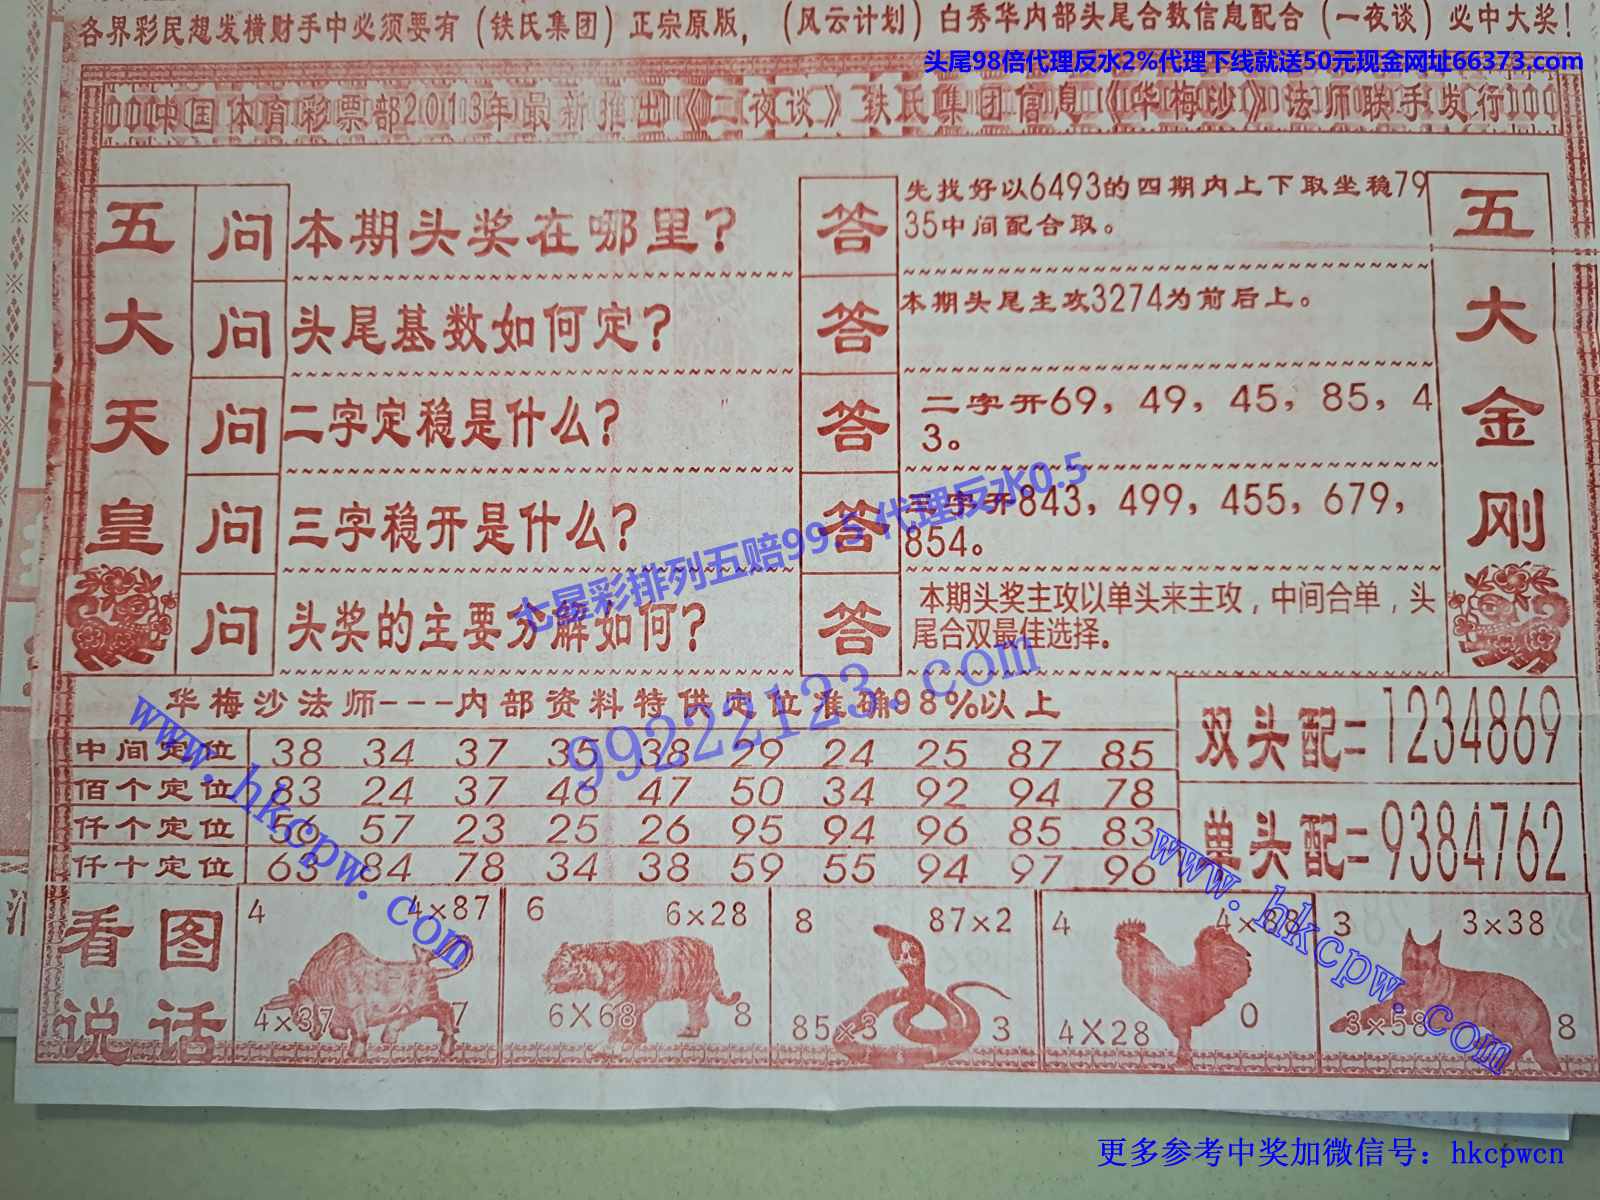 各界彩民想发横财手中必须要有（铁氏集团）正宗原版，（风云计划）白秀华内部头尾合数信息配合（一夜谈）必中大奖！
头尾98倍代理反水2%代理下线就送50元现金网址66373.com
中国体育彩票部2013年最新推出《二夜谈》铁氏集团信息《华梅沙》法师联手发行
五大天皇
问 本期头奖在哪里？
答 先找好以6493的四期内上下取坐稳79
35中间配合取。
问 头尾基数如何定？
答 本期头尾主攻3274为前后上。
问 二字定稳是什么？
答 二字开69，49，45，85，4
3。
问 三字稳开是什么？
答 三字开843，499，455，679，
854。
问 头奖的主要分解如何？
答 本期头奖主攻以单头来主攻，中间合单，头
尾合双最佳选择.
五大金刚
七星彩排列五赔99.5 代理反水0.5
99222123.com
华梅沙法师---内部资料特供定位准确98%以上
中间定位 38 34 37 35 38 29 24 25 87 85
佰个定位 83 24 37 46 47 50 34 92 94 78
仟个定位 56 57 23 25 26 95 94 96 85 83
仟十定位 63 84 78 34 38 59 55 94 97 96
双头配=1234869
单头配=9384762
www.hkcpw.com
www.hkcpw.com
看图
说话
4 4×87
4×37 7
6 6×28
6X68 8
8 87×2
85×3 3
4 4×88
4X28 0
3 3×38
3×58 8
更多参考中奖加微信号：hkcpwcn